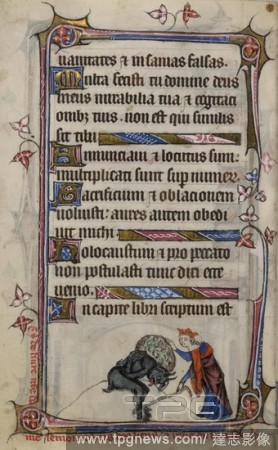 uanitates & in sanias falsas.
Multa fecisti tu domine deus
meus mirabilia tua & cogitaci
onibz tuis. non est qui similis
sit tibi
Annunciaui & locutus sum:
multiplicati sunt sup numer
Sacrificium & oblacionem
noluisti: aures autem obedi
ut michi.
Holocaustum & pro peccato
non postulasti tunc dixi ecce
uenio.
In capite libri scriptum est
TPG
www.tpgnews.com/ 達志影像